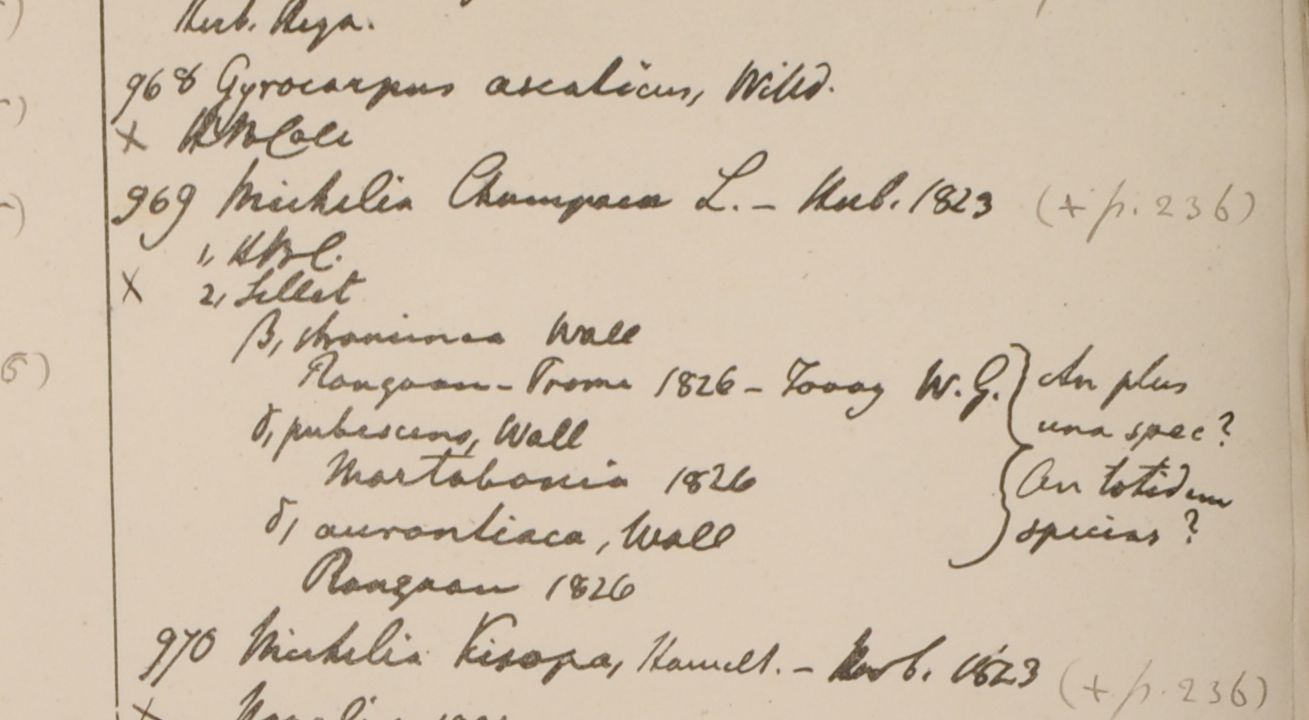 Herb. Heyn.
968 Gyrocarpus asiaticus, Willd.
× HBCalc
969 Michelia Champaca L. – Herb. 1823 (+ p. 236)
1, HBC.
× 2, Sillet
β, straminea Wall
Rangoon – Prome 1826 – Tavoy W.G. } An plus
una spec?
γ, pubescens, Wall
Martabania 1826 { An totidem
species?
δ, aurantiaca, Wall
Rangoon 1826
970 Michelia Kisopa, Hamilt. – Herb. 1823 (+ p. 236)
×